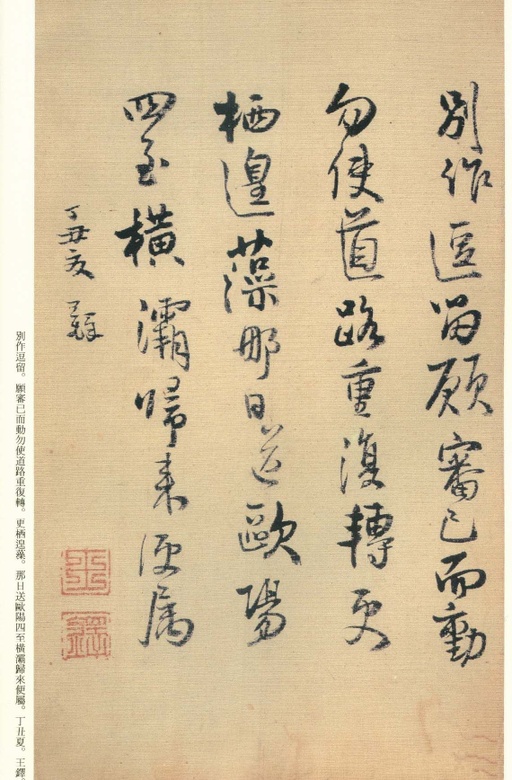 別作逗留願審己而動
勿使道路重復轉更
栖遑藻那日送歐陽
四至橫灞歸來便屬
丁丑夏 王鐸
別作逗留。願審己而動勿使道路重復轉。更栖遑藻。那日送歐陽四至橫灞歸來便屬。丁丑夏。王鐸。